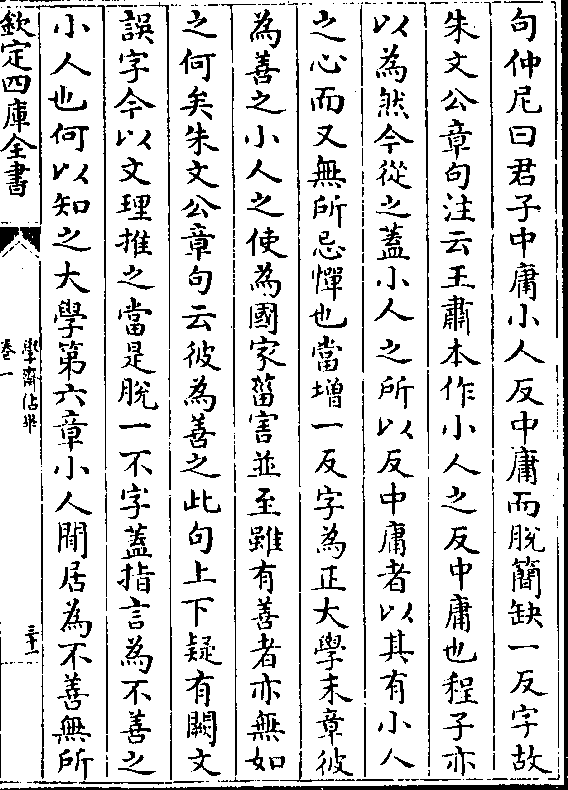 句仲尼曰君子中庸小人反中庸而脫簡缺一反字故
朱文公章句注云王肅本作小人之反中庸也程子亦
以為然今從之蓋小人之所以反中庸者以其有小人
之心而又無所忌憚也當增一反字為正大學末章彼
為善之小人之使為國家菑害並至雖有善者亦無如
之何矣朱文公章句云彼為善之此句上下疑有闕文
誤字今以文理推之當是脫一不字蓋指言為不善之
小人也何以知之大學第六章小人閒居為不善無所
欽定四庫全書
學齋佔畢
卷一
三十一